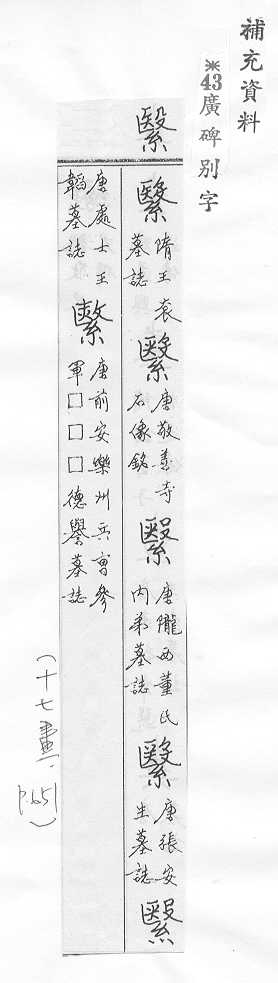 補充資料
※43廣碑別字
繄
繄隋王袞墓誌繄唐敬善寺石像銘繄唐隴西董氏內弟墓誌繄唐張安生墓誌繄
唐處士王韜墓誌繄唐前安樂州兵曹參軍□□□德譽墓誌
(十七畫、p.651)